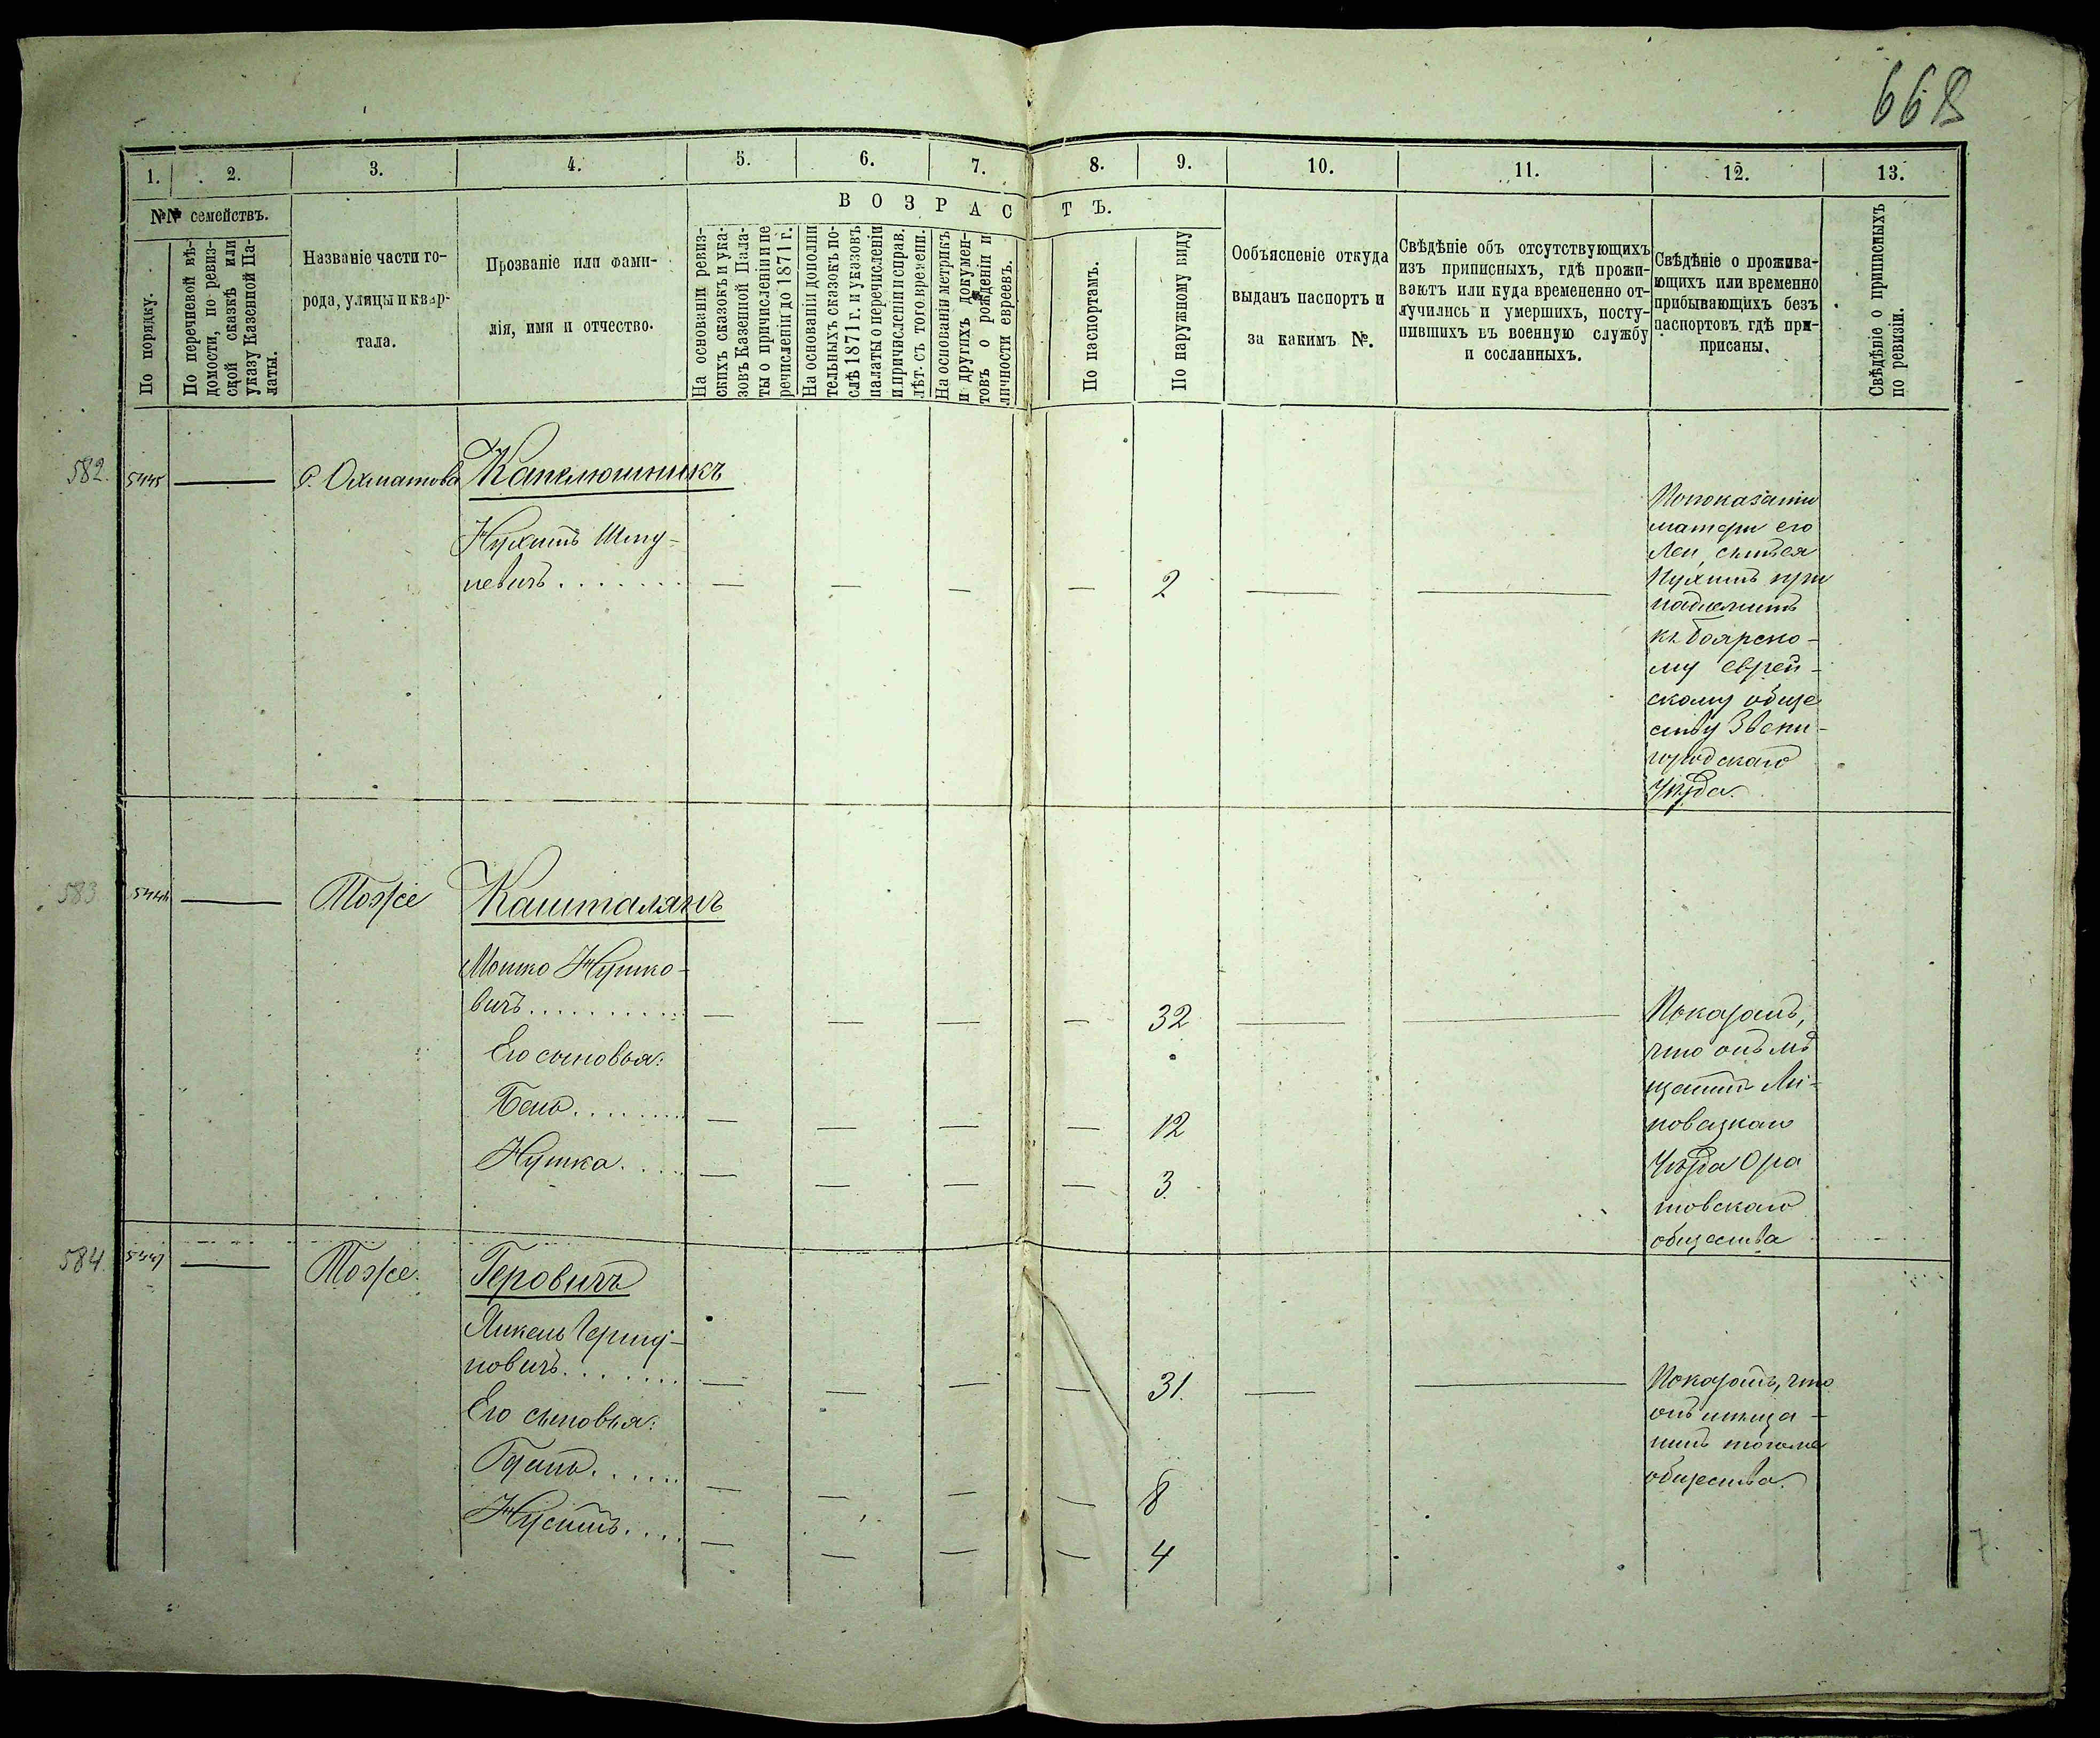 668
1. 2. 3. 4. 5. 6. 7. 8. 9. 10. 11. 12. 13.
№№ семействъ.
По порядку.
По перечневой вѣ-
домости, по ревиз-
ской сказкѣ или
указу Казенной Па-
латы.
Названіе части го-
рода, улицы и квар-
тала.
Прозваніе или фами-
лія, имя и отчество.
ВОЗРАСТЪ.
На основаніи ревиз-
скихъ сказокъ и ука-
зовъ Казенной Пала-
ты о причисленіи и пе
речисленіи до 1871 г.
На основаніи дополни
тельныхъ сказокъ по-
слѣ 1871 г. и указовъ
палаты о перечисленіи
и причисленіи и справ.
лѣт. съ того времени.
На основаніи метрикъ
и другихъ докумен-
товъ о рожденіи и
личности евреевъ.
По паспортамъ.
По наружному виду
Ообъясненіе откуда
выданъ паспортъ и
за какимъ №.
Свѣдѣніе объ отсутствующихъ
изъ приписныхъ, гдѣ прожи-
ваютъ или куда временено от-
лучились и умершихъ, посту-
пившихъ въ военную службу
и сосланныхъ.
Свѣдѣніе о прожива-
ющихъ или временно
прибывающихъ безъ
паспортовъ гдѣ при-
присаны.
Свѣдѣніе о приписныхъ
по ревизіи.
582. 5445 — с. Охматова Капелюшникъ
Нухимъ Шму-
левичъ . . . . . . . — — — — 2 — —
По показанію
матери его
Леи, сынъ ея
Нухимъ при
надлежитъ
къ Боярско-
му еврей-
скому обще
ству Звени-
городскаго
Уѣзда.
583 5446 — Тоже Кашталянъ
Мошко Нушко-
вичъ . . . . . . . . . — — — — 32 — —
Его сыновья:
Беню . . . . . . . . — — — — 12
Нушка . . . . — — — — 3
Показалъ,
что онъ мѣ
щанинъ Ли-
повецкаго
Уѣзда Ора
товскаго
общества
584. 5447 — Тоже. Геровичъ
Янкель Герш
новичъ . . . . . . . — — — — 31. — —
Его сыновья:
. . . . . . — — — — 8
Нусимъ . . . . — — — — 4
Показалъ, что
онъ мѣща-
нинъ тогоже
общества.
7.